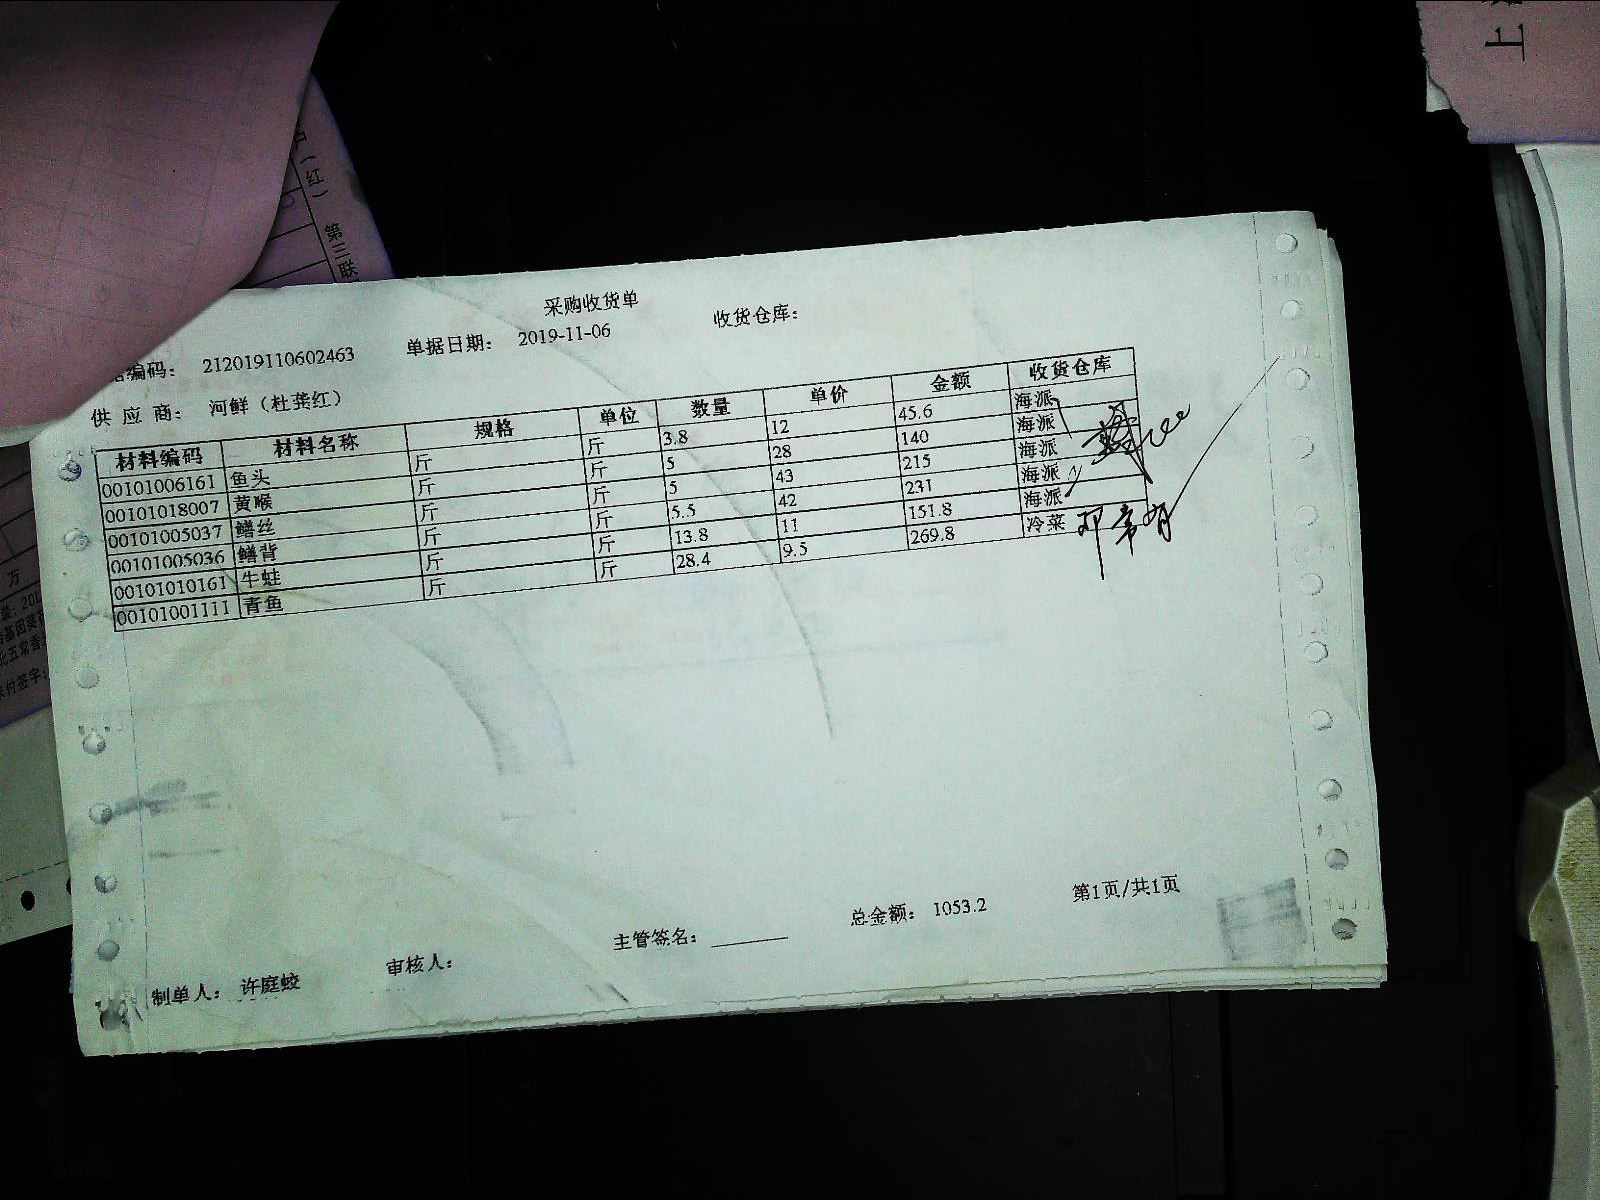 上
(红)
第三联
采购收货单
编码： 212019110602463 单据日期： 2019-11-06 收货仓库：
供 应 商： 河鲜（杜龚红）
材料编码 材料名称 规格 单位 数量 单价 金额 收货仓库
00101006161 鱼头 斤 斤 3.8 12 45.6 海派
00101018007 黄喉 斤 斤 5 28 140 海派
00101005037 鳝丝 斤 斤 5 43 215 海派
00101005036 鳝背 斤 斤 5.5 42 231 海派
00101010161 牛蛙 斤 斤 13.8 11 151.8 海派
00101001111 青鱼 斤 斤 28.4 9.5 269.8 冷菜
万
基因葵花
北五常香
付签字：
制单人： 许庭蛟 审核人： 主管签名： 总金额： 1053.2 第1页/共1页